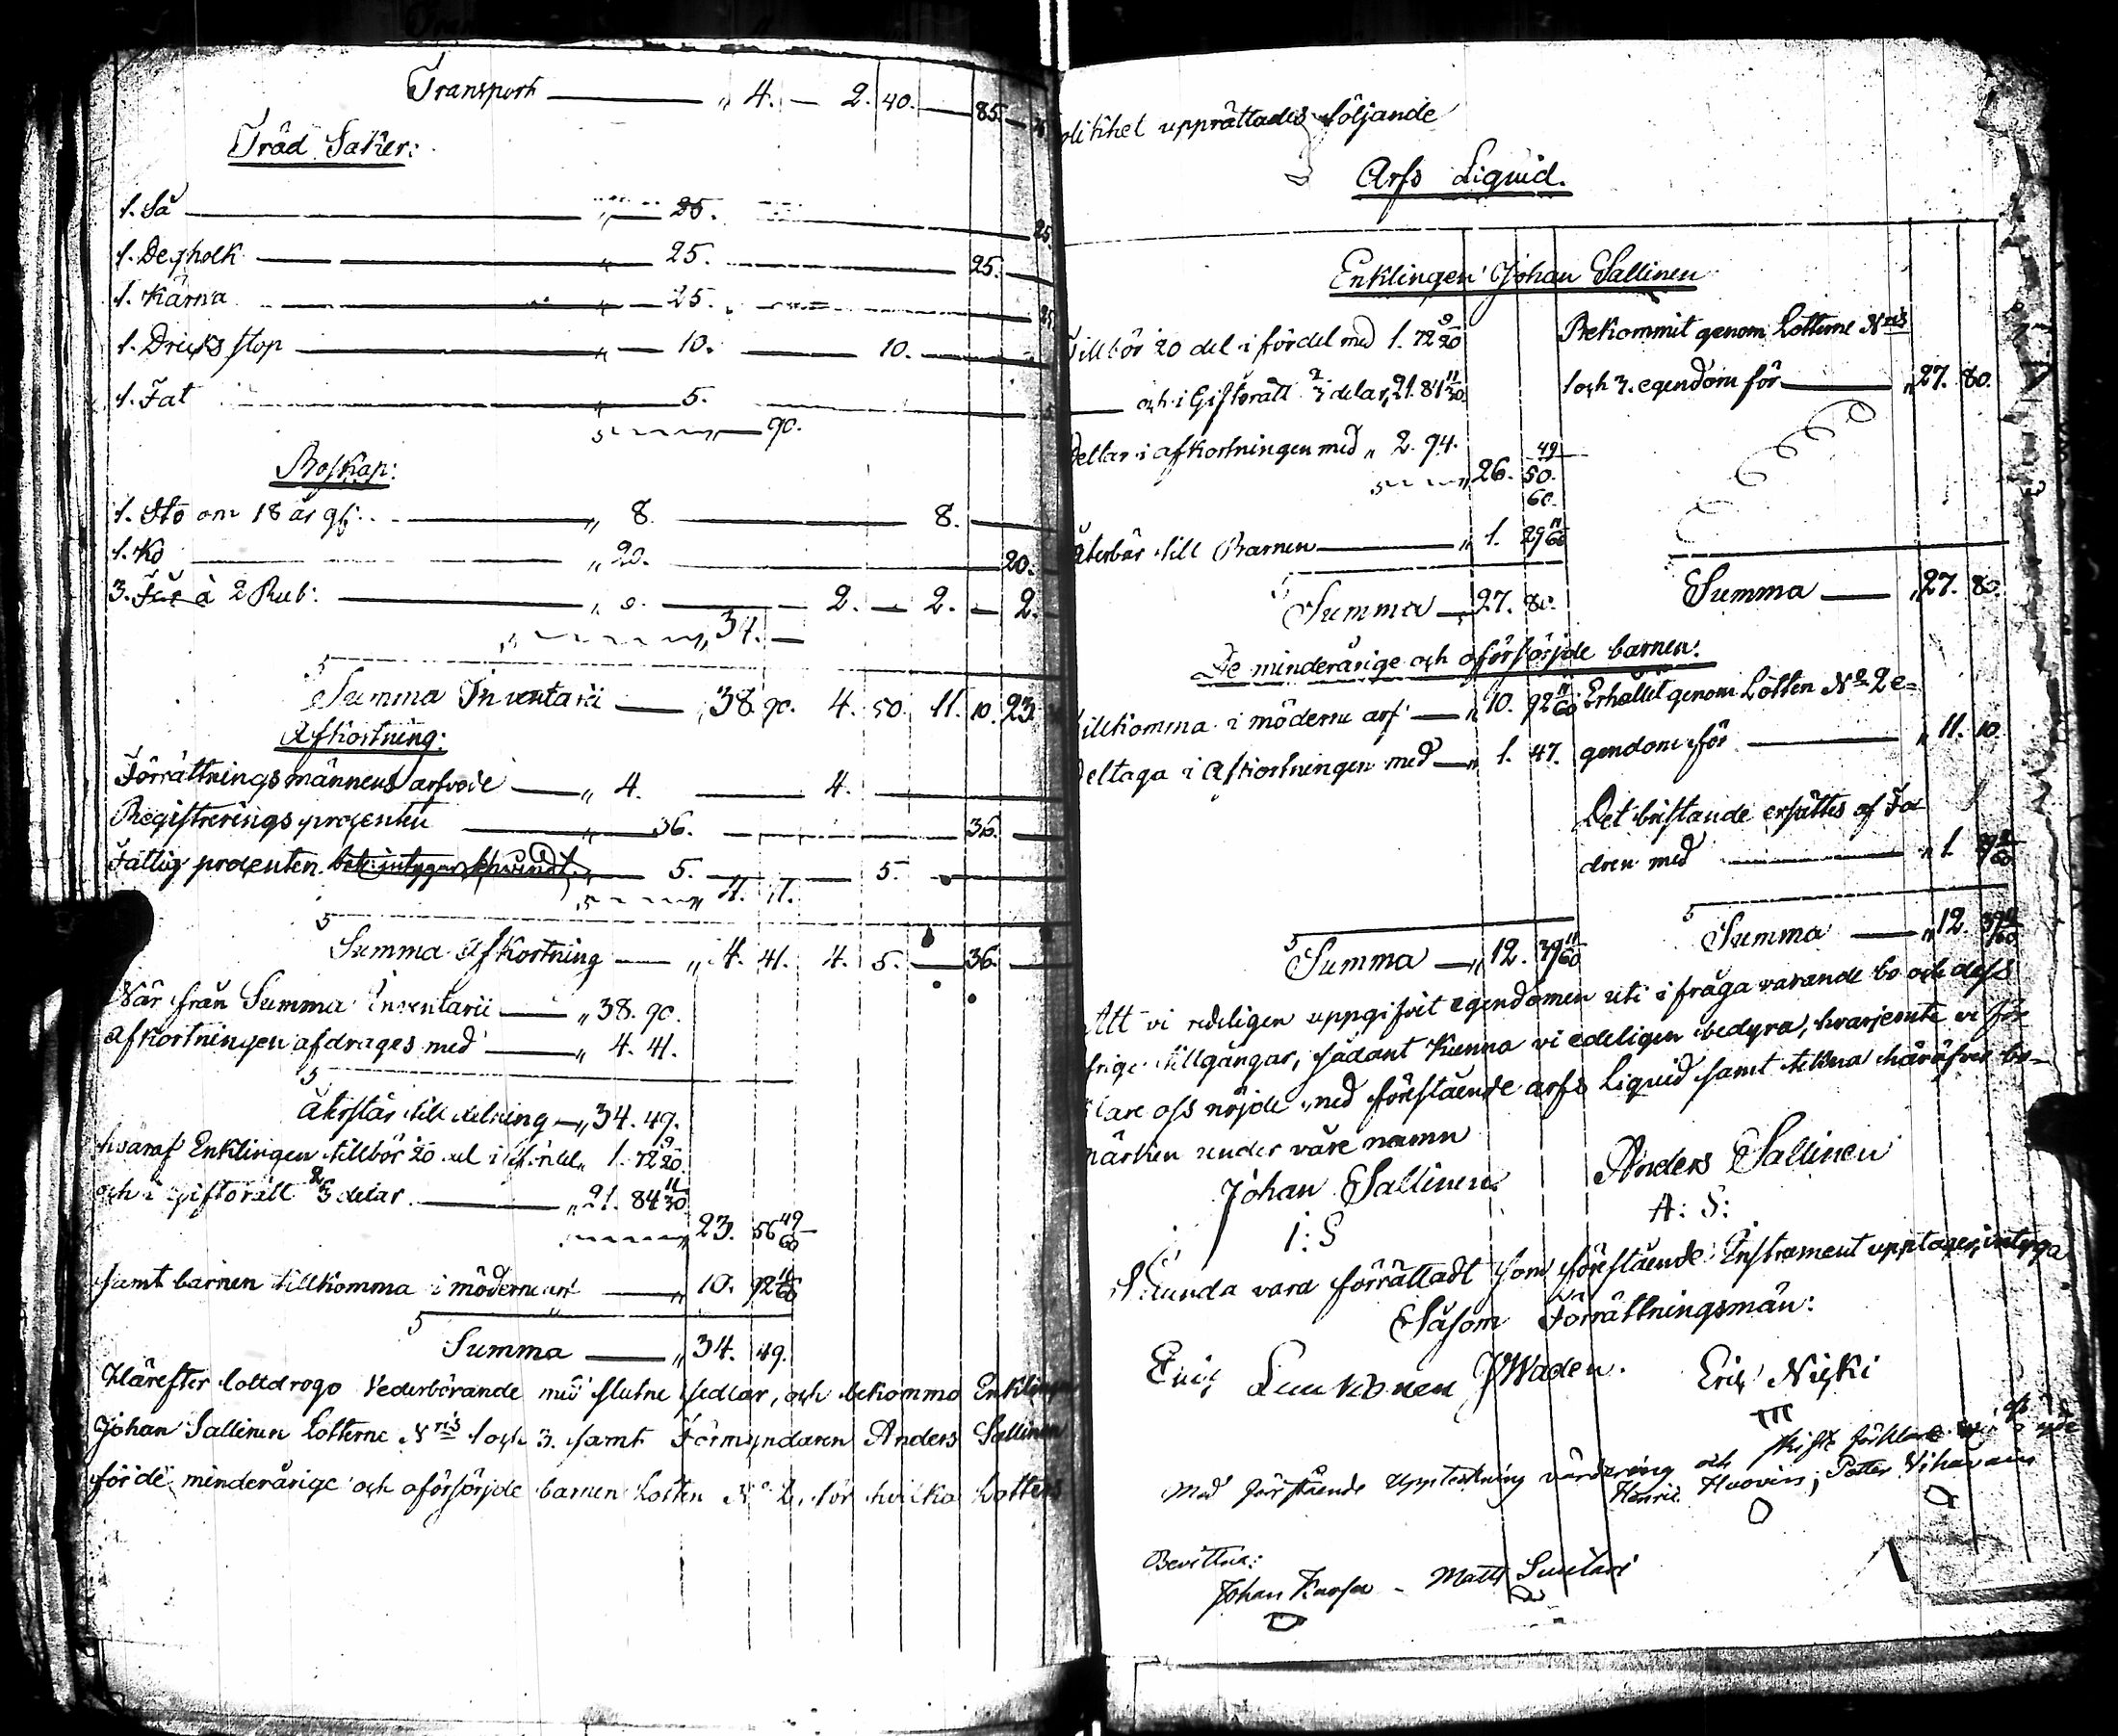 Transport — „ 4. — 2. 40. — 85. —
Träd Saker:
1. Så — „ — 25. 25.
1. Degholk — „ — 25. — 25. —
1. Kärna — „ — 25. — 25.
1. Dricks stop — „ — 10. — 10. —
1. Fat — „ — 5. — 5.
„ — 90.
Boskap:
1. Sto om 18 år gl: — „ 8. — 8. —
1. Ko — „ 20. — 20.
3. Får à 2 Rub: — „ 6. — 2. — 2. — 2.
„ 34. —
Summa Inventarii — „ 38. 90. 4. 50. 11. 10. 23.
Afkortning:
Förrättningsmännens arfvode — „ 4. — 4. —
Registrerings procenten — „ — 36. — 36. —
Fattig procenten — „ — 5. — 5. —
„ 4. 41.
Summa Afkortning — „ 4. 41. 4. 5. — 36. —
När från Summa Inventarii — „ 38. 90.
Afkortningen afdrages med — „ 4. 41.
Återstår till delning — „ 34. 49.
hvaraf Enklingen tillbör 20 del i fördel „ 1. 72 9/20
och i Giftorätt 2/3 delar — „ 21. 84 11/30
„ 23. 56 49/60
samt barnen tillkomma i möderne arf — „ 10. 92 11/60
Summa — „ 34. 49.
Härefter lottdrogo Vederbörande med slutne sedlar, och bekommo Enklingen
Johan Sallinen Lotterne Nris 1 och 3. samt Förmyndaren Anders Sallinen
för de minderårige och oförsörjde barnen Lotten No 2, för hvilka Lotters
olikhet upprättades följande
Arfs Liquid.
Enklingen Johan Sallinen
Tillbör 20 del i fördel med 1. 72 9/20
och i Giftorätt 2/3 delar „ 21. 84 11/30
Deltar i afkortningen med „ 2. 94.
„ 26. 50. 49/60
Återbär till Barnen — „ 1. 29 11/60
Summa — „ 27. 80.
Bekommit genom Lotterne Nris
1 och 3. egendom för — „ 27. 80.
Summa — „ 27. 80.
De minderårige och oförsörjde barnen.
Tillkomma i möderne arf — „ 10. 92 11/60
Deltaga i Afkortningen med — „ 1. 47.
Summa — „ 12. 39 11/60
Erhållit genom Lotten No 2 e=
gendom för — „ 11. 10.
Det bristande ersättes af Fa
dren med — „ 1. 29 11/60
Summa — „ 12. 39 11/60
Att vi redeligen uppgifvit egendomen uti i fråga varande bo och dess
öfrige tillgångar, sådant kunna vi edeligen bedyra, hvarjemte vi för
klare oss nöjde med förestående arfs Liquid samt teckna häröfver bo=
märken under våre namn
Johan Sallinen
I: S
Anders Sallinen
A: S:
Sålunda vara förrättadt som förestående Instrument upptager, intyga
Såsom Förrättningsmän:
Eric Luukkonen JWaden. Eric Niski
Med förstående Uppteckning värdering och skifte förklare
Henric Huovin; Petter Vihavain
Bevittna:
Johan Karhu - Matts Suutari